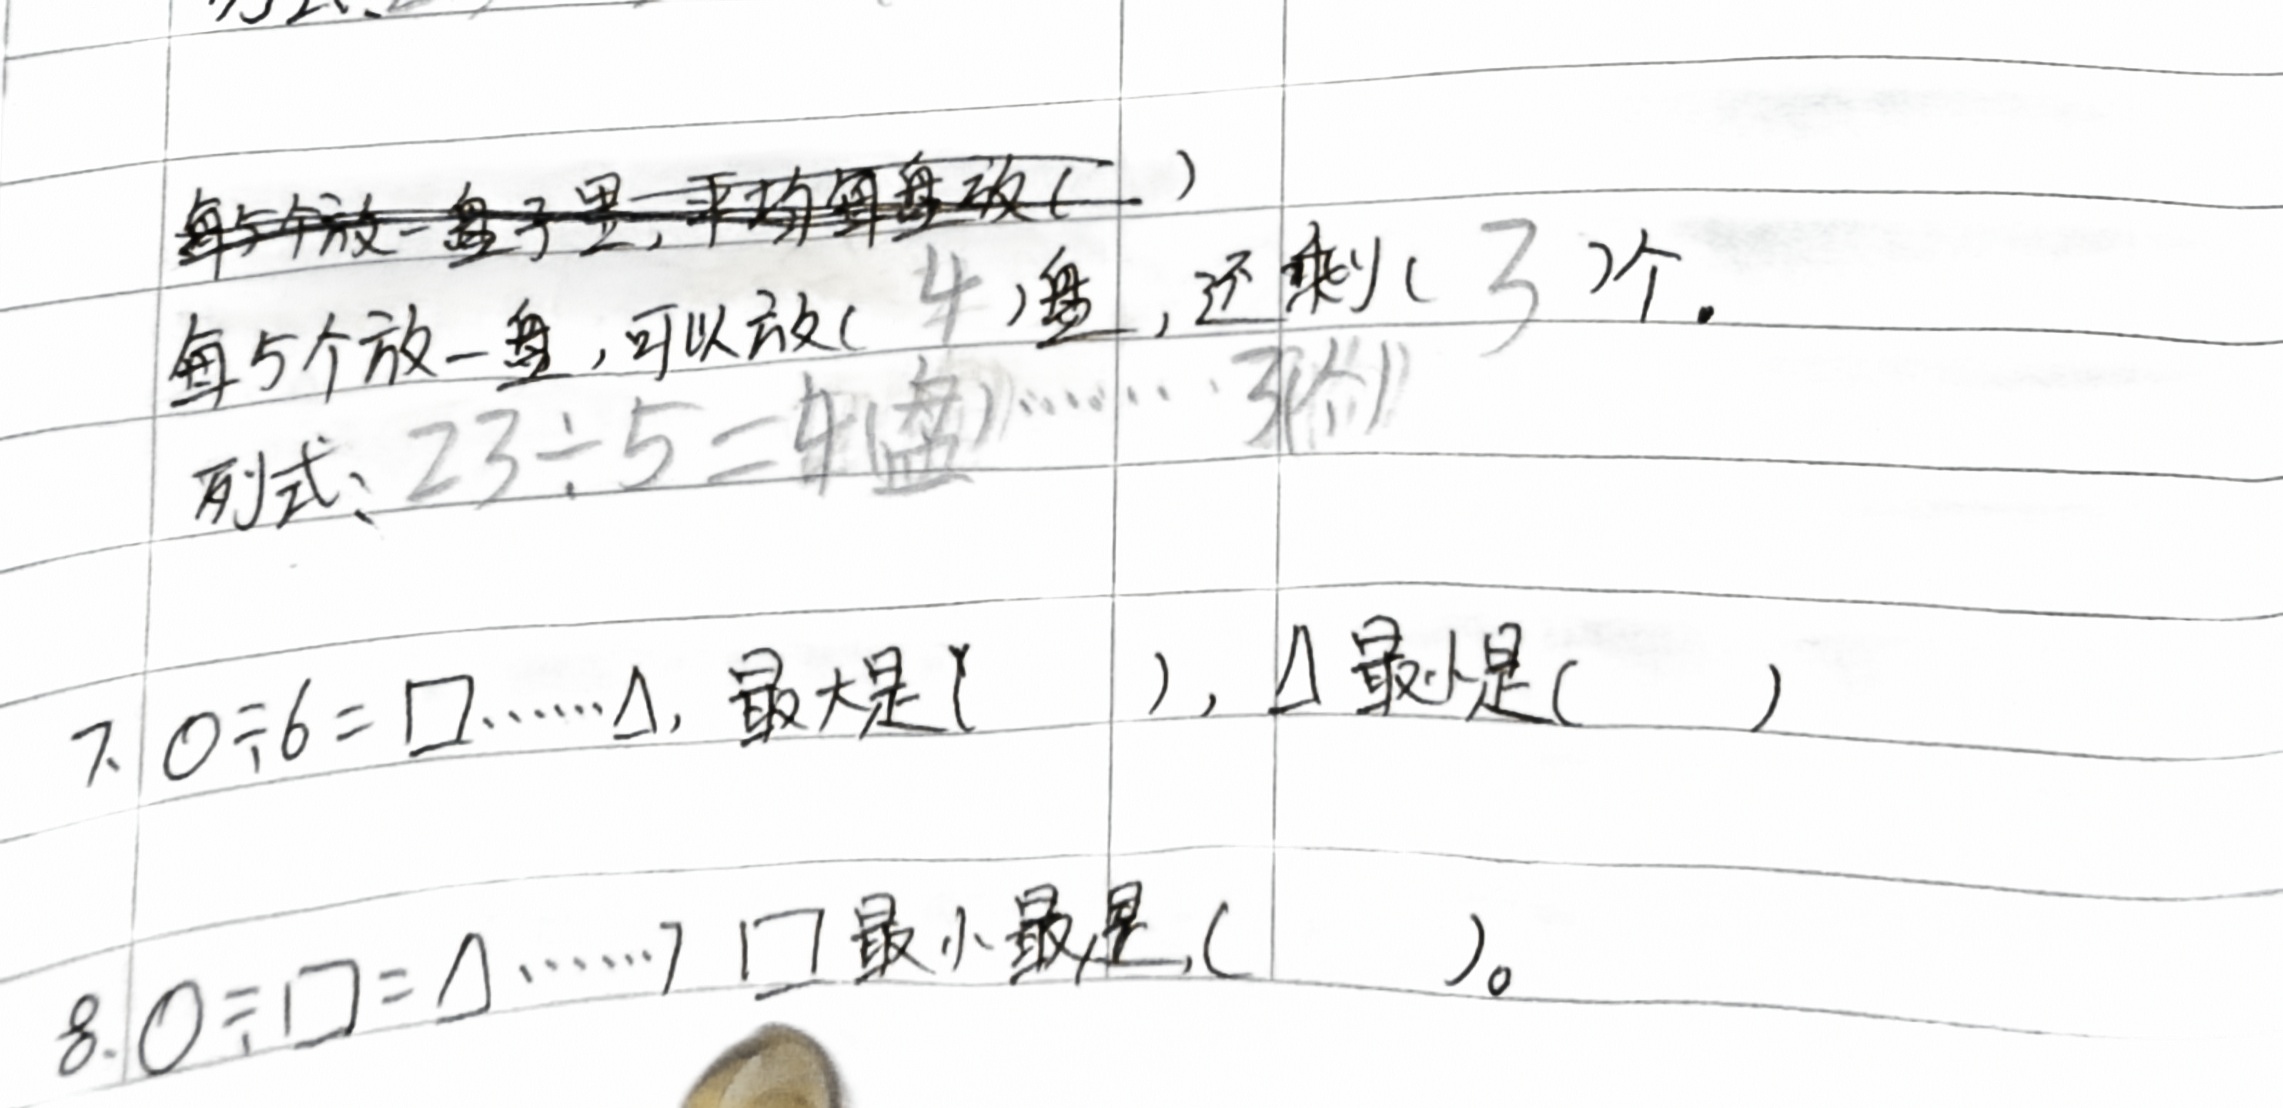 列式:
每5个放一盘子里,平均每盘放( )
每5个放一盘,可以放( 4 )盘,还剩( 3 )个.
列式: 23÷5=4(盘)……3(个)
7. ○÷6=□……△, 最大是( ), △最小是( )
8. ○÷□=△……7 □最小最是,( )。